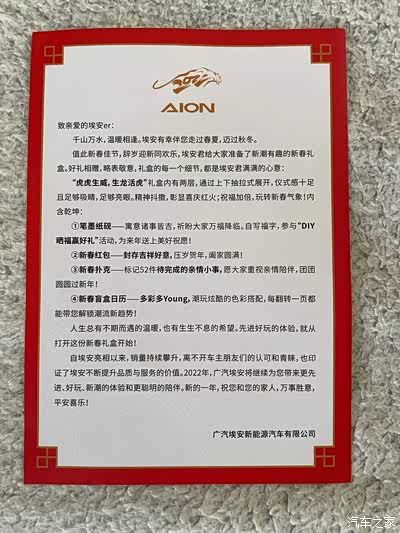 AION
致亲爱的埃安er：
千山万水，温暖相逢。埃安有幸伴您走过春夏，迈过秋冬。
值此新春佳节，辞岁迎新同欢乐，埃安君给大家准备了新潮有趣的新春礼
盒。好礼相赠，略表敬意，礼盒的每一个细节，都是埃安君满满的心意：
“虎虎生威，生龙活虎”礼盒内有两层，通过上下抽拉式展开，仪式感十足
且足够吸睛，足够亮眼。精神抖擞，彰显喜庆红火；祝福加倍，玩转新春气象！内
含乾坤：
①笔墨纸砚——寓意诸事皆吉，祈盼大家万福降临。自写福字，参与“DIY
晒福赢好礼”活动，为来年送上美好祝愿！
②新春红包——封存吉祥好意，压岁贺年，阖家圆满！
③新春扑克——标记52件待完成的亲情小事，愿大家重视亲情陪伴，团团
圆圆过新年！
④新春盲盒日历——多彩多Young，潮玩炫酷的色彩搭配，每翻转一页都
能带您解锁潮流新趋势！
人生总有不期而遇的温暖，也有生生不息的希望。先进好玩的体验，就从
打开这份新春礼盒开始！
自埃安亮相以来，销量持续攀升，离不开车主朋友们的认可和青睐，也印
证了埃安不断提升品质与服务的价值。2022年，广汽埃安将继续为您带来更先
进、好玩、新潮的体验和更聪明的陪伴。新的一年，祝您和您的家人，万事胜意，
平安喜乐！
广汽埃安新能源汽车有限公司
汽车之家